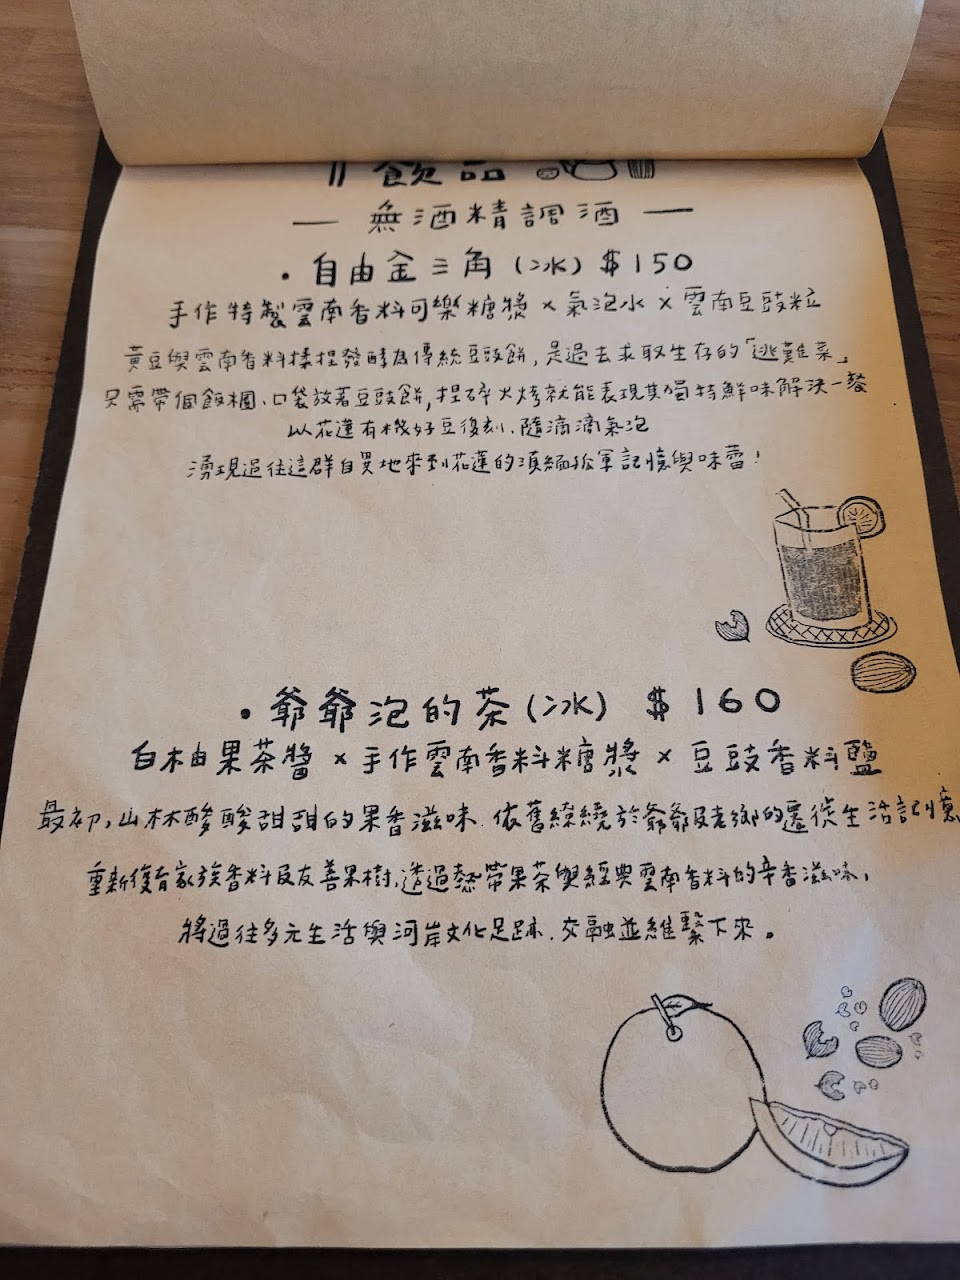 飲品
— 無酒精調酒 —
・自由金三角(冰) $150
手作特製雲南香料可樂糖漿 × 氣泡水 × 雲南豆豉粒
黃豆與雲南香料揉捏發酵為傳統豆豉餅,是過去求取生存的「逃難菜」
只需帶個飯糰、口袋放著豆豉餅,捏碎火烤就能表現其獨特鮮味解決一餐
以花蓮有機好豆復刻.隨滴滴氣泡
湧現過往這群自異地來到花蓮的滇緬孤軍記憶與味蕾!
・爺爺泡的茶(冰) $160
白柚果茶醬 × 手作雲南香料糖漿 × 豆豉香料鹽
最初,山林酸酸甜甜的果香滋味.依舊繚繞於爺爺及老鄉的遷徙生活記憶
重新復育家族香料及友善果樹,透過熱帶果茶與經典雲南香料的辛香滋味,
將過往多元生活與河岸文化足跡.交融並維繫下來。